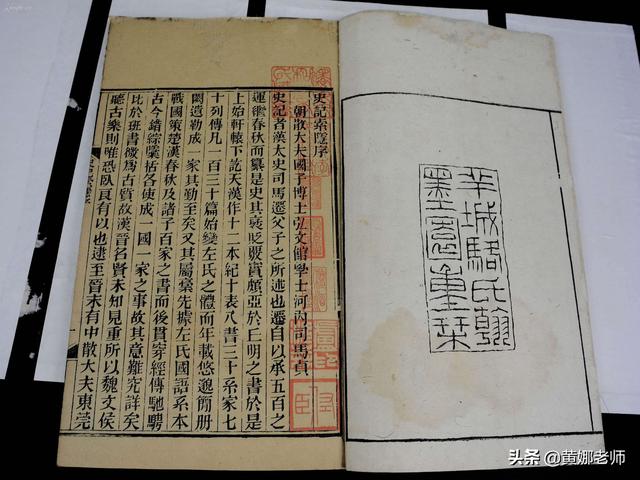 羊城駱氏翰
墨園重栞
史記索隱序
朝散大夫國子博士弘文館學士河內司馬貞
史記者漢太史司馬遷父子之所述也遷自以承五百之
運繼春秋而纂是史其褒貶覈實頗亞於丘明之書於是
上始軒轅下訖天漢作十二本紀十表八書三十系家七
十列傳凡一百三十篇始變左氏之體而年載悠邈簡冊
闕遺勒成一家其勤至矣又其屬稾先據左氏國語系本
戰國策楚漢春秋及諸子百家之書而後貫穿經傳馳騁
古今錯綜櫽栝各使成一國一家之事故其意難究詳矣
比於班書微為古質故漢晉名賢未知見重所以魏文侯
聽古樂則唯恐臥良有以也逮至晉末有中散大夫東莞
头条 @黄娜老师